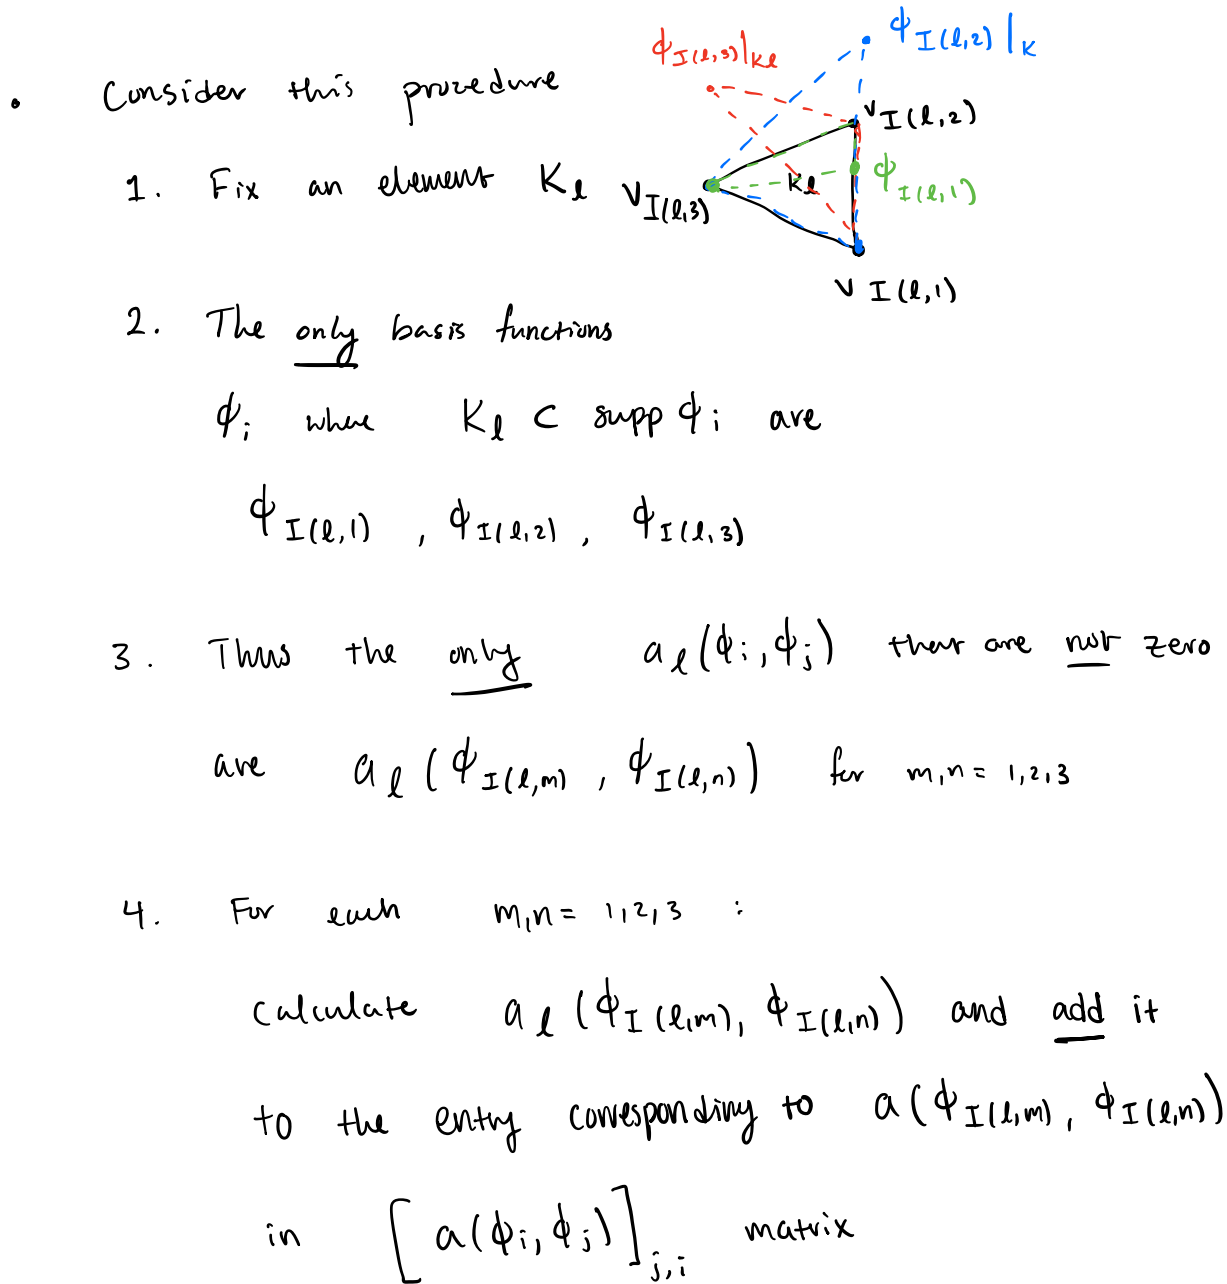 • Consider this procedure
ϕ_{I(ℓ,3)}|_{Kℓ}
ϕ_{I(ℓ,2)}|_K
V_{I(ℓ,2)}
1. Fix an element K_ℓ
V_{I(ℓ,3)}
K_ℓ
ϕ_{I(ℓ,1)}
V_{I(ℓ,1)}
2. The only basis functions
ϕ_i where K_ℓ ⊂ supp ϕ_i are
ϕ_{I(ℓ,1)} , ϕ_{I(ℓ,2)} , ϕ_{I(ℓ,3)}
3. Thus the only a_ℓ(ϕ_i, ϕ_j) that are not zero
are a_ℓ(ϕ_{I(ℓ,m)} , ϕ_{I(ℓ,n)}) for m,n = 1,2,3
4. For each m,n = 1,2,3 :
calculate a_ℓ(ϕ_{I(ℓ,m)}, ϕ_{I(ℓ,n)}) and add it
to the entry corresponding to a(ϕ_{I(ℓ,m)}, ϕ_{I(ℓ,n)})
in [a(ϕ_i, ϕ_j)]_{j,i} matrix